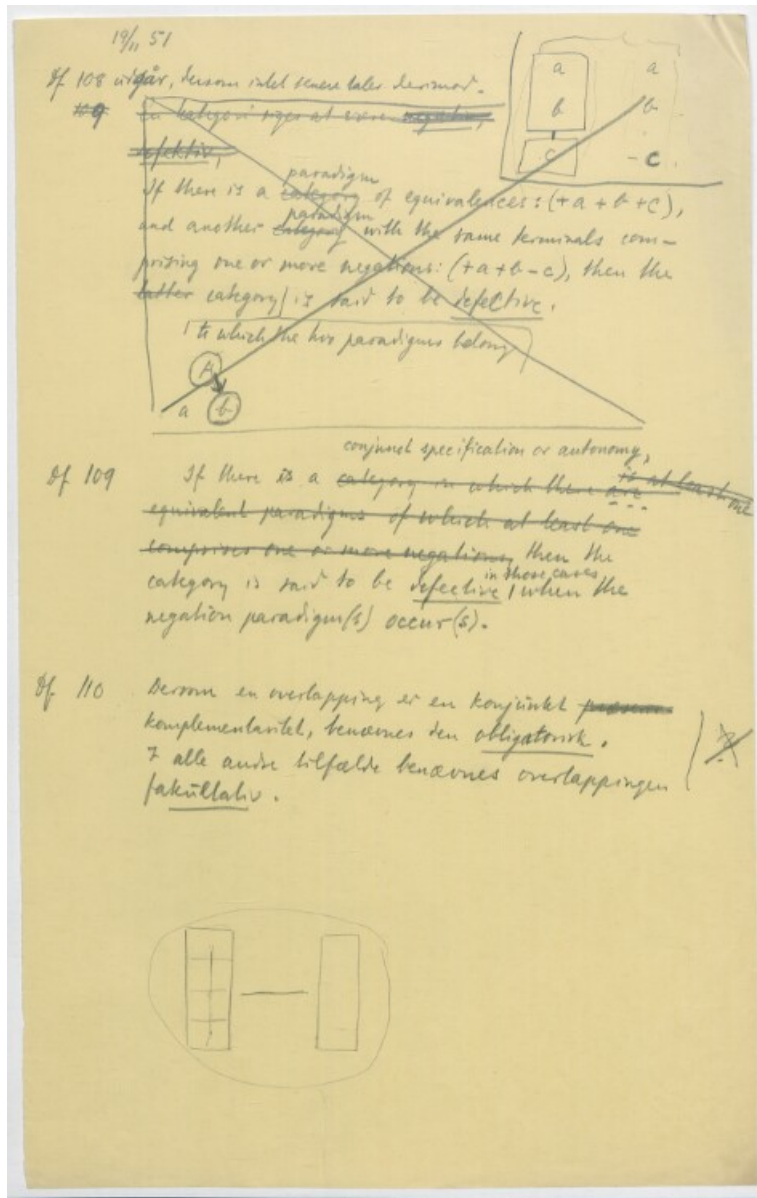 19/11 51
Df 108 udgår, dersom intet senere taler derimod.
109 En kategori siges at være negativ,
defektiv,
If there is a category paradigm of equivalences: (+a +b +c),
and another category paradigm with the same terminals com-
prising one or more negations: (+a+b-c), then the
latter category is said to be defective.
to which the two paradigms belong
A
a b
a a
b b
c - c.
conjunct specification or autonomy,
Df 109 If there is a category in which there are is at least one
equivalent paradigms of which at least one
comprises one or more negations, then the
category is said to be defective in those cases when the
negation paradigm(s) occur(s).
Df 110 Dersom en overlapping er en konjunkt
komplementaritet, benævnes den obligatorisk.
I alle andre tilfælde benævnes overlappingen
fakultativ.